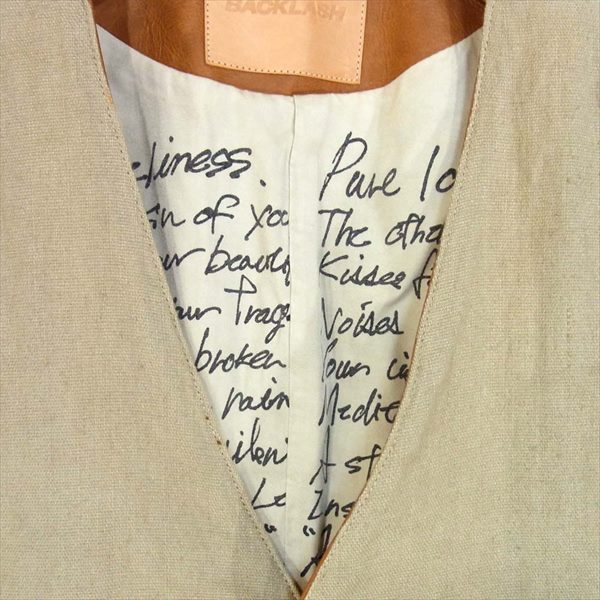 BACKLASH
liness.
of you
beauty
your Frag
broken
rain
Le
"
Pure lo
The othe
Kisses f
Noises
Your ci
Medic
A st
Ins
"